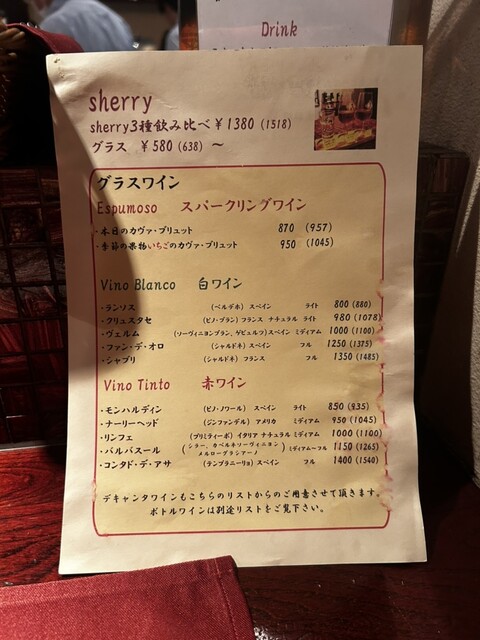 Drink
sherry
sherry3種飲み比べ ¥1380 (1518)
グラス ¥580 (638) 〜
グラスワイン
Espumoso スパークリングワイン
・本日のカヴァ・ブリュット 870 (957)
・季節の果物いちごのカヴァ・ブリュット 950 (1045)
Vino Blanco 白ワイン
・ランソス (ベルデホ) スペイン ライト 800 (880)
・クリュスタセ (ピノ・ブラン) フランス ナチュラル ライト 980 (1078)
・ヴェルム (ソーヴィニヨンブラン、ゲビュルツ) スペイン ミディアム 1000 (1100)
・ファン・デ・オロ (シャルドネ) スペイン フル 1250 (1375)
・シャブリ (シャルドネ) フランス フル 1350 (1485)
Vino Tinto 赤ワイン
・モンハルディン (ピノ・ノワール) スペイン ライト 850 (935)
・ナーリーヘッド (ジンファンデル) アメリカ ミディアム 950 (1045)
・リンフェ (プリミティーボ) イタリア ナチュラル ミディアム 1000 (1100)
・バルバスール (シラー、カベルネソーヴィニヨン メルローグラシアーノ) ミディアム〜フル 1150 (1265)
・コンタド・デ・アサ (テンプラニーリョ) スペイン フル 1400 (1540)
デキャンタワインもこちらのリストからのご用意させて頂きます。
ボトルワインは別途リストをご覧下さい。